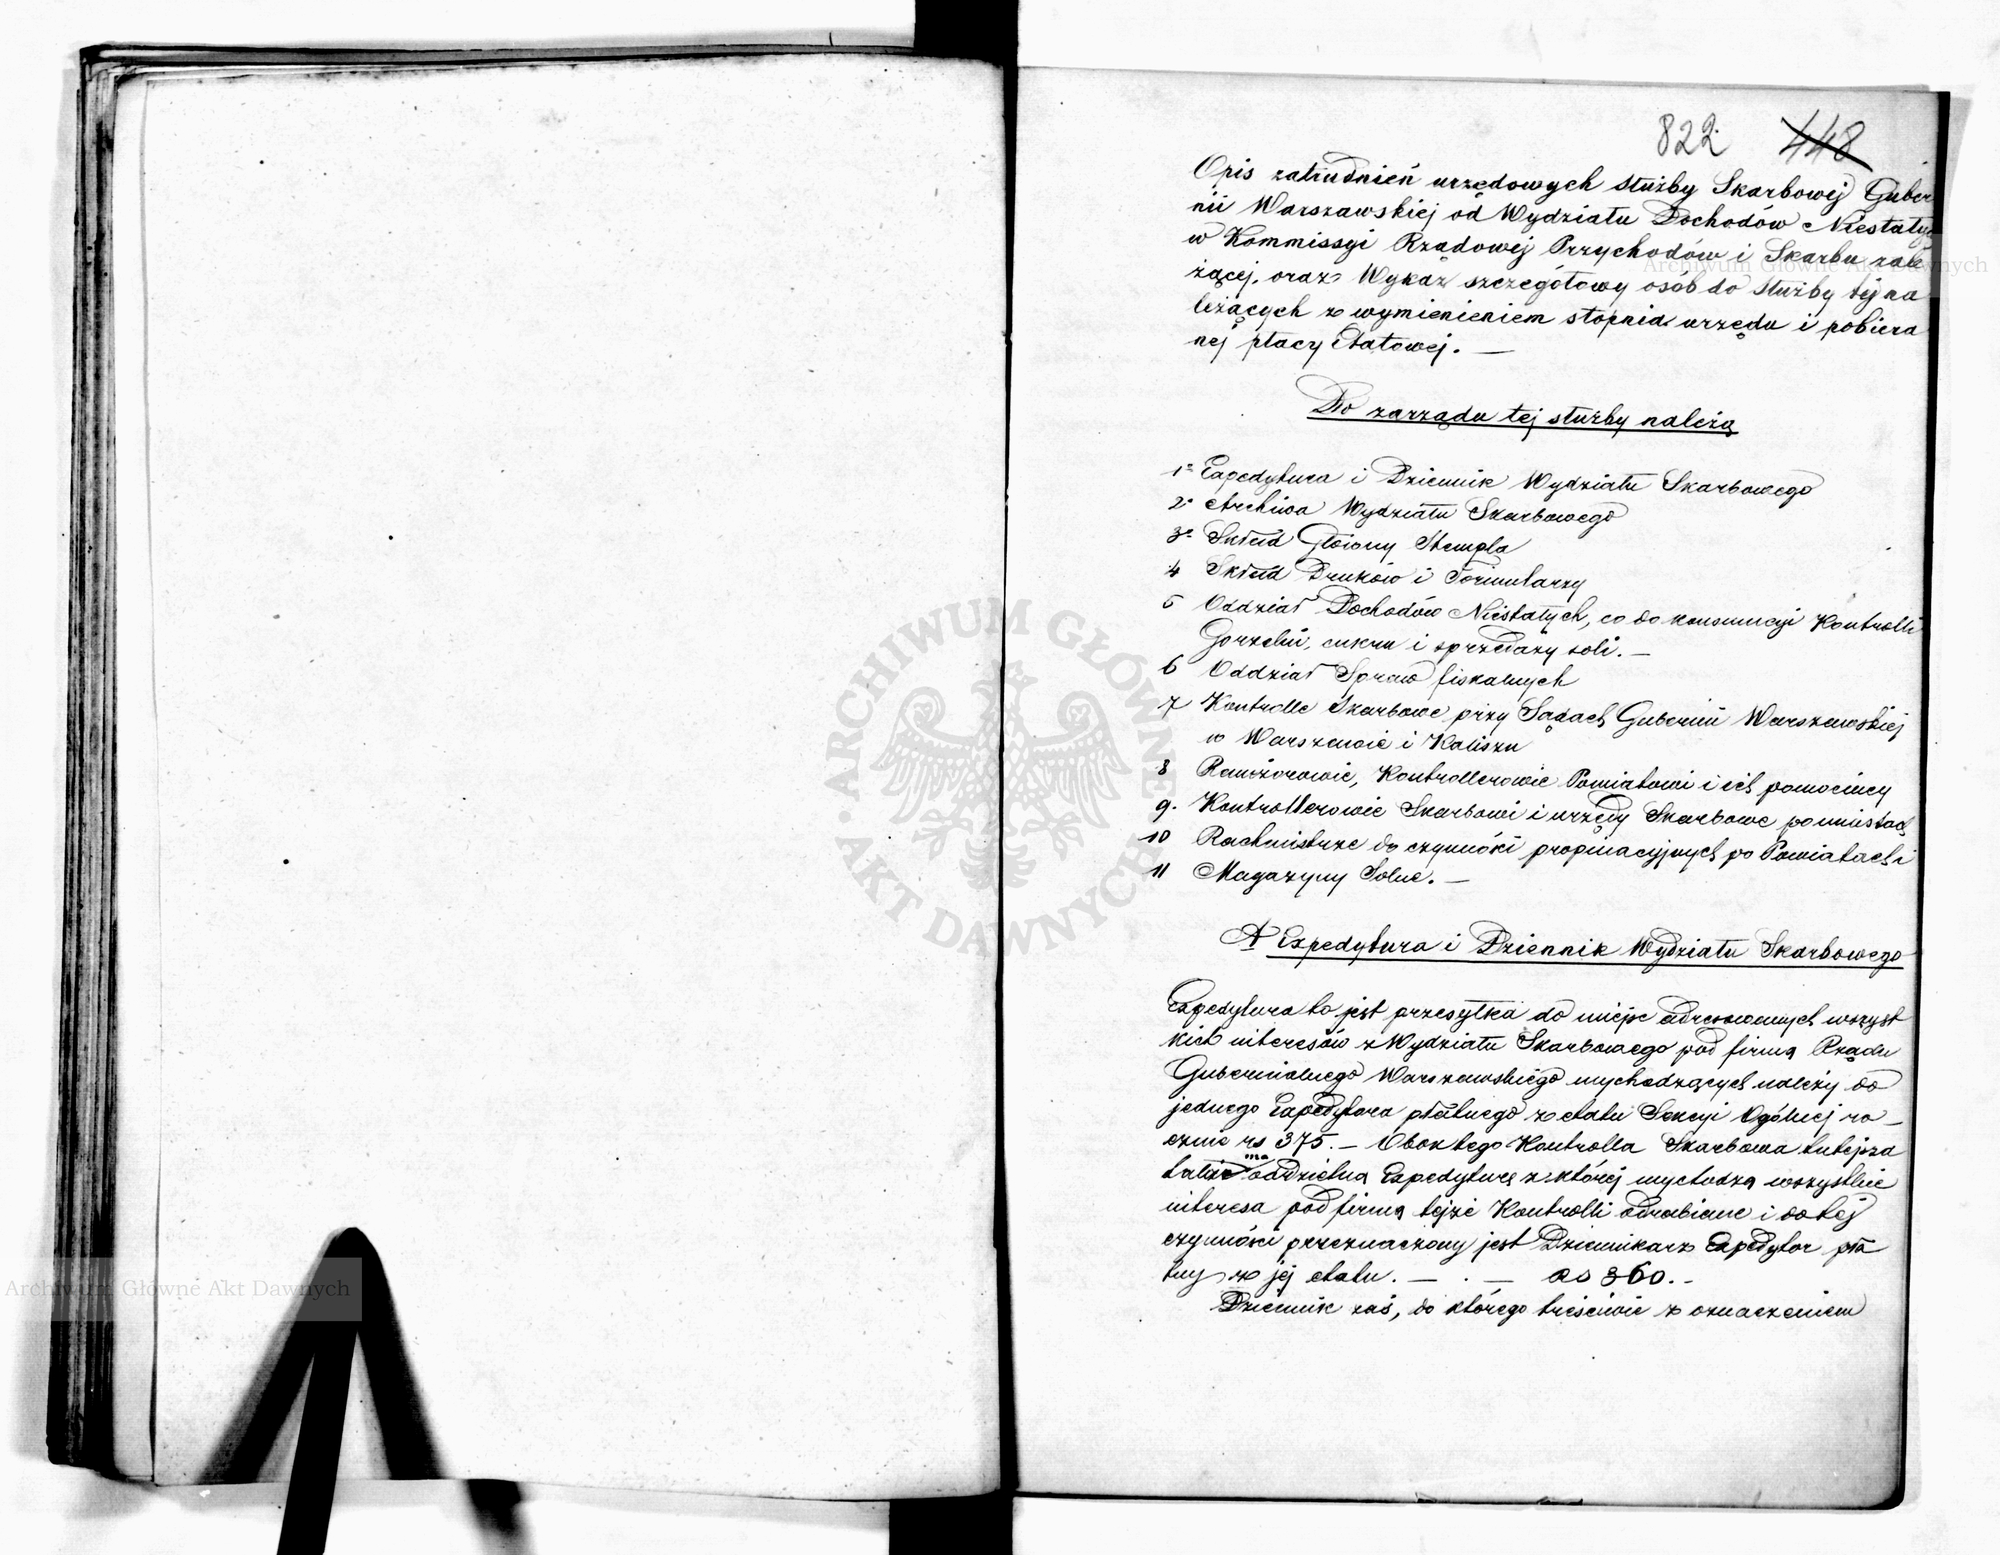 822 448
Opis zatrudnień urzędowych służby Skarbowej Guber
nii Warszawskiej od Wydziału Dochodów Niestały
w Kommissyi Rządowej Przychodów i Skarbu zale
żącej, oraz Wykaz szczegółowy osób do służby tej na
leżących z wymienieniem stopnia urzędu i pobiera
nej płacy Etatowej. —
Do zarządu tej służby należą
1º Expedytura i Dziennik Wydziału Skarbowego
2º Archiwa Wydziału Skarbowego
3º Skład Główny Stempla
4 Skład Druków i Formularzy
5 Oddział Dochodów Niestałych, co do konsumcyi Kontrolli
Gorzelni, cukru i sprzedaży soli. —
6 Oddział Spraw fiskalnych
7 Kontrolle Skarbowe przy Sądach Gubernii Warszawskiej
w Warszawie i Kaliszu
8 Rewizorowie, Kontrollerowie Powiatowi i ich pomocnicy
9. Kontrollerowie Skarbowi i urzędy Skarbowe po miastach
10 Rachmistrze do czynności propinacyjnych po Powiatach i
11 Magazyny Solne. —
A Expedytura i Dziennik Wydziału Skarbowego
Expedytura to jest przesyłka do miejsc adresowanych wszyst
kich interesów z Wydziału Skarbowego pod firmą Rządu
Gubernialnego Warszawskiego wychodzących należy do
jednego Expedytora płatnego z etatu Sekcyi Ogólnej ro—
cznie rs 375. — Obok tego Kontrolla Skarbowa tutejsza
ma
także oddzielną Expedyturę z której wychodzą wszystkie
interesa pod firmą tejże Kontrolli odrabiane i do tej
czynności przeznaczony jest Dziennikarz Expedytor pła
tny z jej etatu. — . — rs 360. -
Dziennik zaś, do którego treściwie z oznaczeniem
ARCHIWUM GŁÓWNE AKT DAWNYCH
Archiwum Główne Akt Dawnych
Archiwum Główne Akt Dawnych